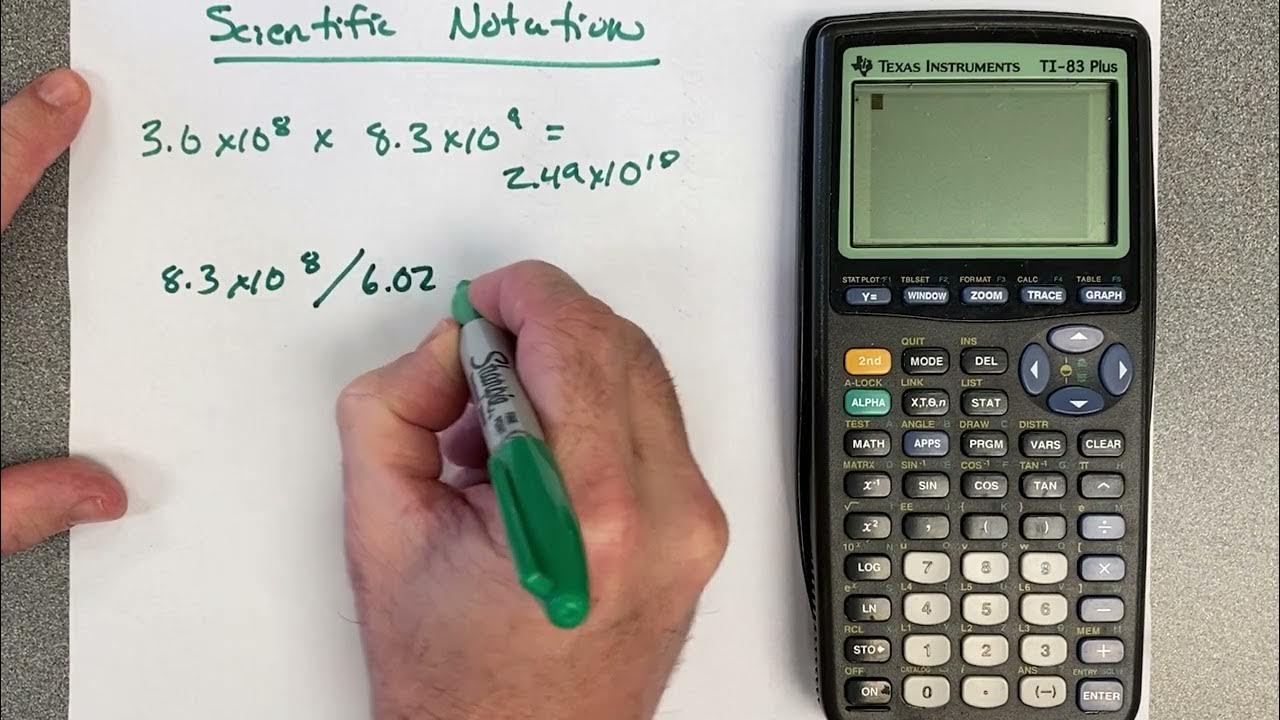 Scientific Notation
3.0 x10⁸ x 8.3 x10⁹ =
2.49 x10¹⁸
8.3 x10⁸ / 6.02
Sharpie
TEXAS INSTRUMENTS TI-83 Plus
STAT PLOT F1 TBLSET F2 FORMAT F3 CALC F4 TABLE F5
Y= WINDOW ZOOM TRACE GRAPH
QUIT INS
2nd MODE DEL
A-LOCK LINK LIST
ALPHA X,T,Θ,n STAT
TEST A ANGLE B DRAW C DISTR
MATH APPS PRGM VARS CLEAR
MATRX D SIN⁻¹ E COS⁻¹ F TAN⁻¹ G π H
x⁻¹ SIN COS TAN ^
√ I EE J { K } L e M
x² , ( ) ÷
10ˣ N u O v P w Q
LOG 7 8 9 ×
eˣ S L4 T L5 U L6 V
LN 4 5 6 −
RCL X L1 Y L2 Z L3 θ MEM "
STO▸ 1 2 3 +
OFF CATALOG i ANS ? ENTRY SOLVE
ON 0 . (−) ENTER